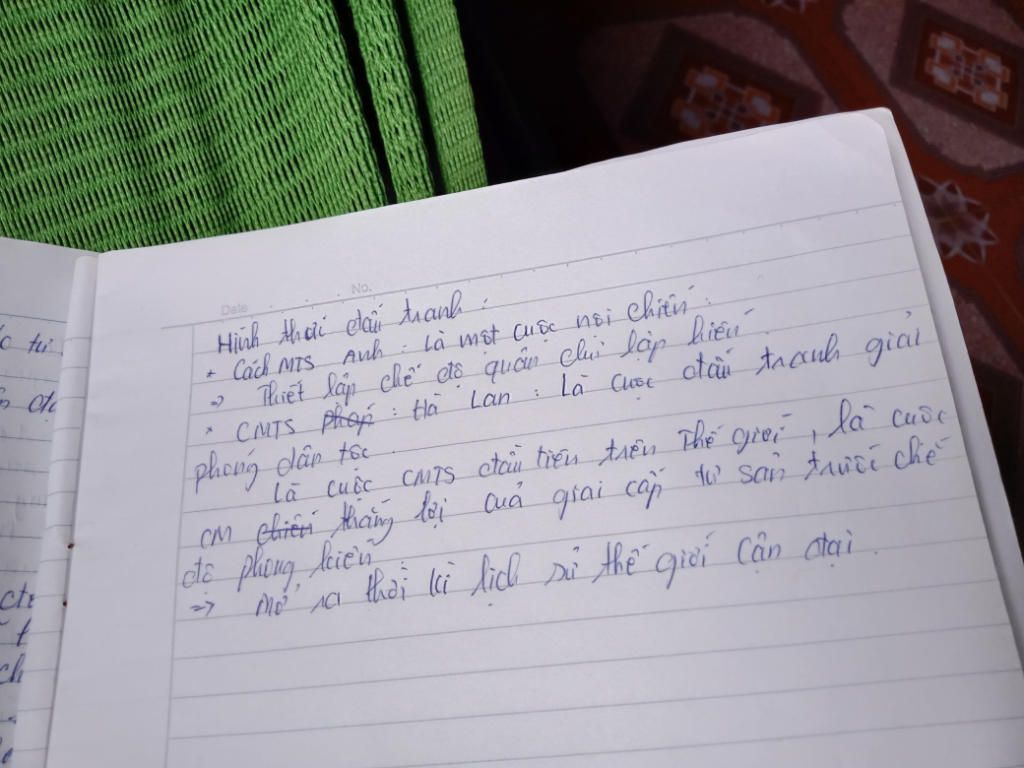 Date No.
Hình thức đấu tranh :
* Cách MTS Anh : Là một cuộc nội chiến.
=> Thiết lập chế độ quân chủ lập hiến
* CMTS Pháp : Hà Lan : Là cuộc đấu tranh giải
phóng dân tộc.
Là cuộc CMTS đầu tiên trên thế giới, là cuộc
CM chiến thắng lợi của giai cấp tư sản trước chế
độ phong kiến
=> Mở ra thời kì lịch sử thế giới Cận đại.